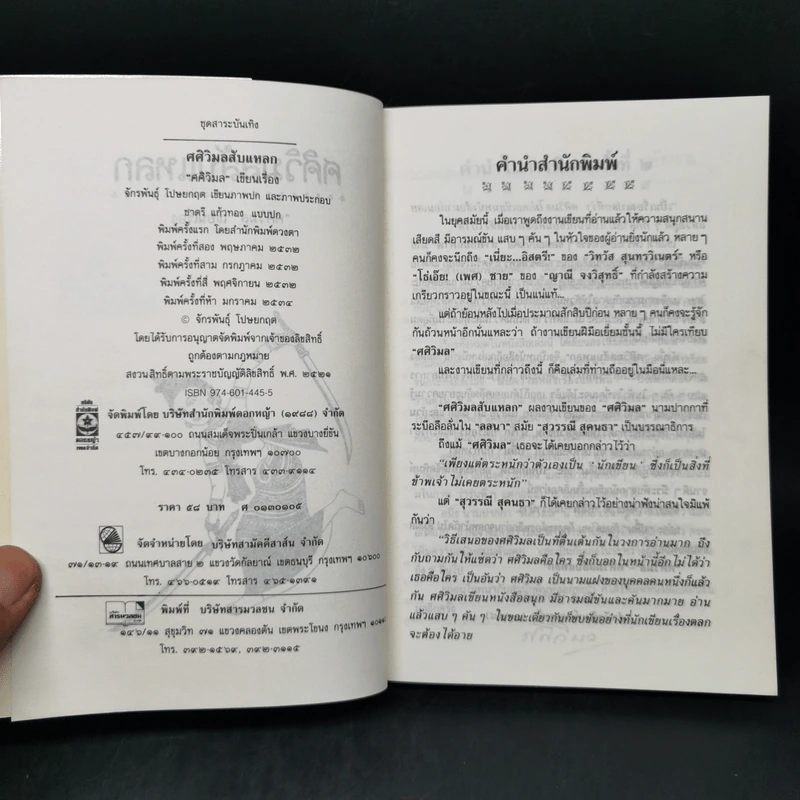 ชุดสาระบันเทิง
ศศิวิมลสับแหลก
"ศศิวิมล" เขียนเรื่อง
จักรพันธุ์ โปษยกฤต เขียนภาพปก และภาพประกอบ
ชาตรี แก้วทอง แบบปก
พิมพ์ครั้งแรก โดยสำนักพิมพ์ดวงตา
พิมพ์ครั้งที่สอง พฤษภาคม ๒๕๓๒
พิมพ์ครั้งที่สาม กรกฎาคม ๒๕๓๒
พิมพ์ครั้งที่สี่ พฤศจิกายน ๒๕๓๒
พิมพ์ครั้งที่ห้า มกราคม ๒๕๓๔
© จักรพันธุ์ โปษยกฤต
โดยได้รับการอนุญาตจัดพิมพ์จากเจ้าของลิขสิทธิ์
ถูกต้องตามกฎหมาย
สงวนลิขสิทธิ์ตามพระราชบัญญัติลิขสิทธิ์ พ.ศ. ๒๕๒๑
ISBN 974-601-445-5
จัดพิมพ์โดย บริษัทสำนักพิมพ์ดอกหญ้า (๑๙๘๘) จำกัด
๔๕๗/๙๙-๑๐๐ ถนนสมเด็จพระปิ่นเกล้า แขวงบางยี่ขัน
เขตบางกอกน้อย กรุงเทพฯ ๑๐๗๐๐
โทร. ๔๓๔-๐๒๓๕ โทรสาร ๔๓๓-๙๑๑๔
ราคา ๕๘ บาท ศ ๐๑๓๐๑๐๕
จัดจำหน่ายโดย บริษัทสามัคคีสาส์น จำกัด
๗๑/๑๓-๑๙ ถนนเทศบาลสาย ๒ แขวงวัดกัลยาณ์ เขตธนบุรี กรุงเทพฯ ๑๐๖๐๐
โทร. ๔๖๖-๐๕๑๙ โทรสาร ๔๖๕-๑๓๙๑
พิมพ์ที่ บริษัทสารมวลชน จำกัด
๑๔๖/๑๑ สุขุมวิท ๗๑ แขวงคลองตัน เขตพระโขนง กรุงเทพฯ
โทร. ๓๙๒-๑๕๖๙, ๓๙๒-๓๑๑๕
คำนำสำนักพิมพ์
ในยุคสมัยนี้ เมื่อเราพูดถึงงานเขียนที่อ่านแล้วให้ความสนุกสนาน
เสียดสี มีอารมณ์ขัน แสบ ๆ คัน ๆ ในหัวใจของผู้อ่านยิ่งนักแล้ว หลาย ๆ
คนก็คงจะนึกถึง "เนี่ยะ...อิสตรี!" ของ "วิทวัส สุนทรวิเนตร์" หรือ
"โธ่เอ๊ย! (เพศ) ชาย" ของ "ญาณี จงวิสุทธิ์" ที่กำลังสร้างความ
เกรียวกราวอยู่ในขณะนี้ เป็นแน่แท้...
แต่ถ้าย้อนหลังไปเมื่อประมาณสักสิบปีก่อน หลาย ๆ คนก็คงจะรู้จัก
กันถ้วนหน้าอีกนั่นแหละว่า ถ้างานเขียนฝีมือเยี่ยมชั้นนี้ ไม่มีใครเทียบ
"ศศิวิมล"
และงานเขียนที่กล่าวถึงนี้ ก็คือเล่มที่ท่านถืออยู่ในมือนี่แหละ...
"ศศิวิมลสับแหลก" ผลงานเขียนของ "ศศิวิมล" นามปากกาที่
ระบือลือลั่นใน "ลลนา" สมัย "สุวรรณี สุคนธา" เป็นบรรณาธิการ
ถึงแม้ "ศศิวิมล" เธอจะได้เคยบอกกล่าวไว้ว่า
"เพียงแต่ตระหนักว่าตัวเองเป็น 'นักเขียน' ซึ่งก็เป็นสิ่งที่
ข้าพเจ้าไม่เคยตระหนัก"
แต่ "สุวรรณี สุคนธา" ก็ได้เคยกล่าวไว้อย่างน่าฟังน่าสนใจมิแพ้
กันว่า
"วิธีเสนอของศศิวิมลเป็นที่ตื่นเต้นกันในวงการอ่านมาก ถึง
กับถามกันให้แซ่ดว่า ศศิวิมลคือใคร ซึ่งก็บอกในหน้านี้อีกไม่ได้ว่า
เธอคือใคร เป็นอันว่า ศศิวิมล เป็นนามแฝงของบุคคลคนหนึ่งก็แล้ว
กัน ศศิวิมลเขียนหนังสือสนุก มีอารมณ์ขันและคันมากมาย อ่าน
แล้วแสบ ๆ คัน ๆ ในขณะเดียวกันก็ขบขันอย่างที่นักเขียนเรื่องตลก
จะต้องได้อาย